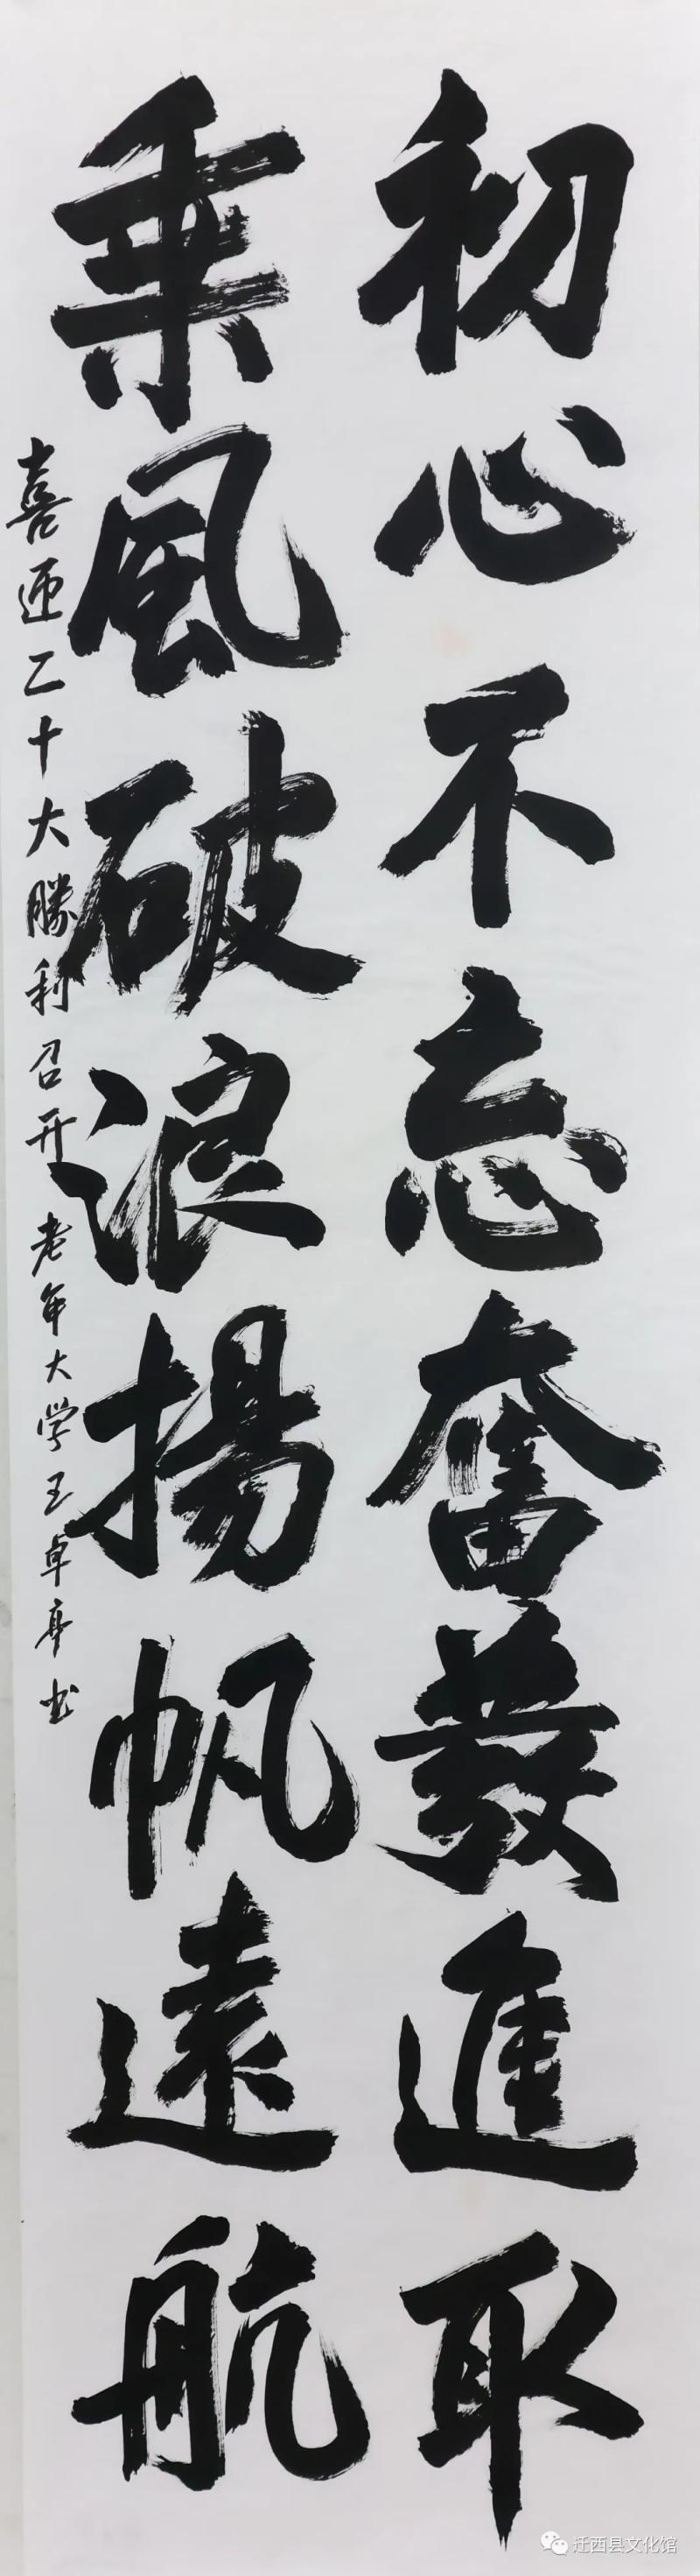 初心不忘奮發進取
乘風破浪揚帆遠航
喜迎二十大勝利召开 老年大学王卓亭书
迁西县文化馆